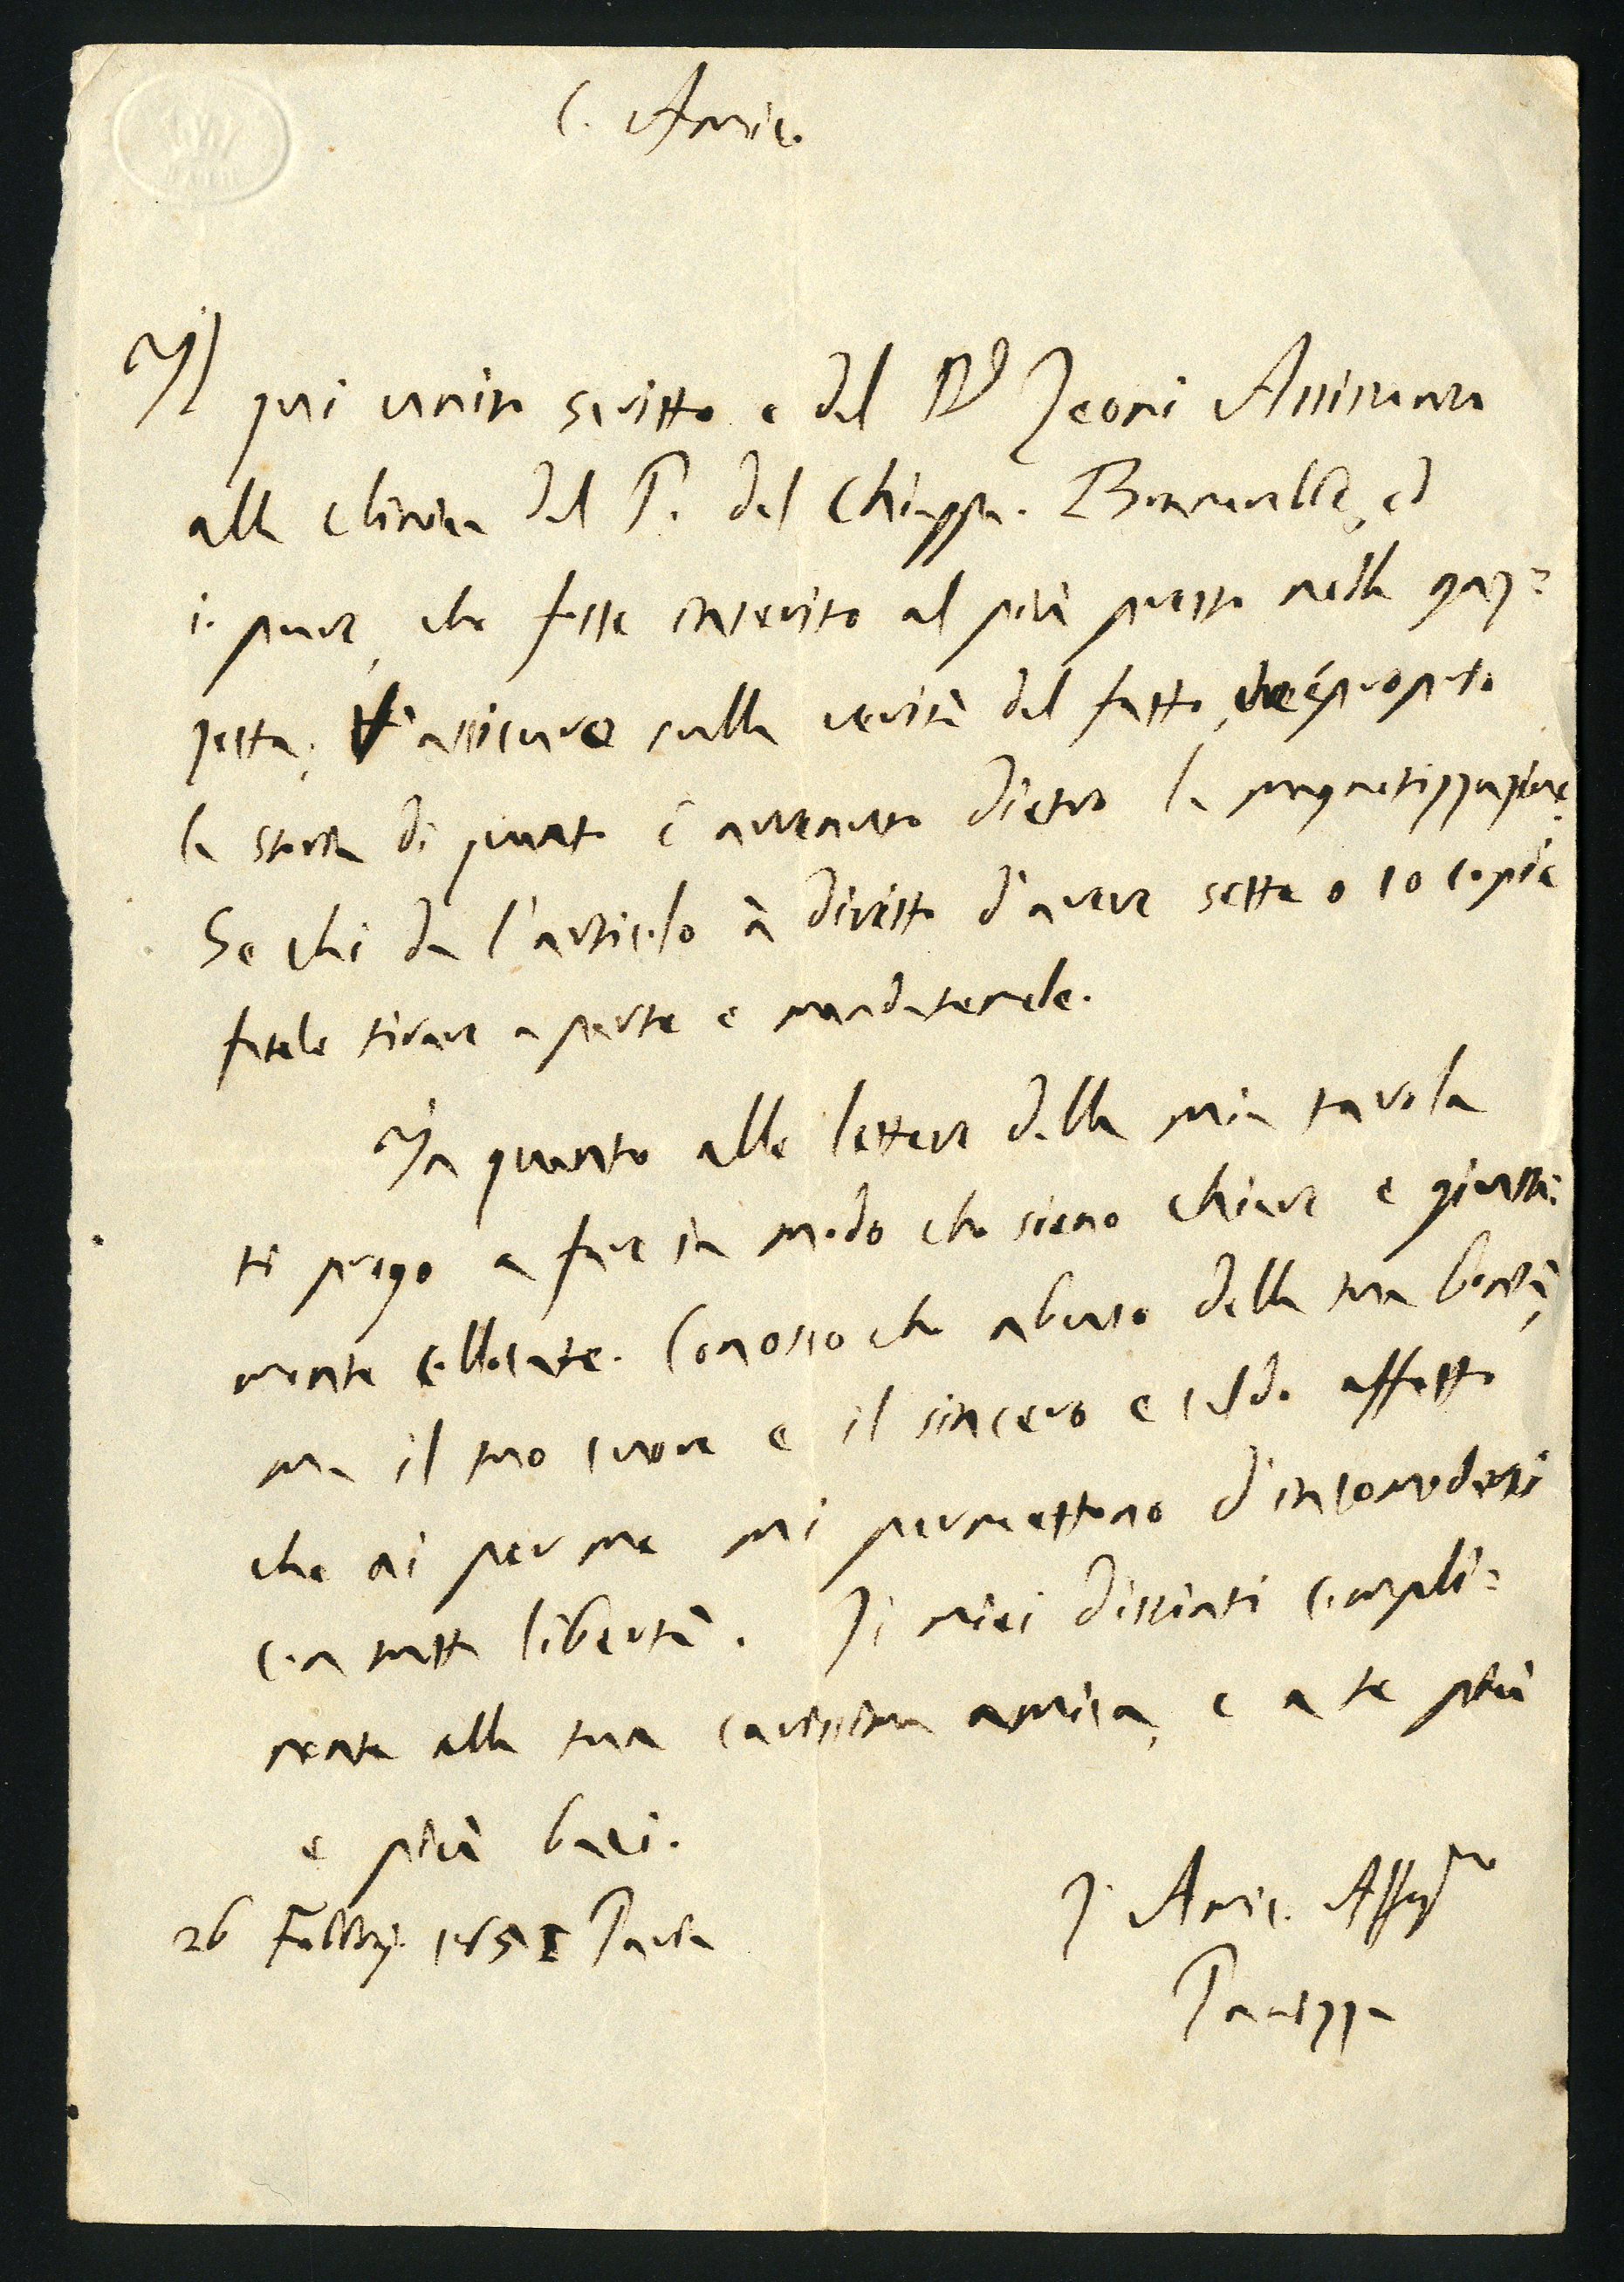 C. Amico
Il qui unito scritto e del D.r Leoni Assistente
alla clinica del P. del Chiappa. Bramerebbe, ed
io pure, che fosse inserito al più presto nella gaz=
zetta; T'assicuro sulla verità del fatto, che é proprio
la storia di quanto è avvenuto dietro la magnetizzazione.
Se chi da l'articolo à diritto d'avere sette o 10 copie
fatele tirare a parte e mandatemele.
In quanto alle lettere della mia tavola
ti prego a fare in modo che sieno chiare e giusta=
mente collocate. Conosco che abuso della tua bontà,
ma il tuo cuore e il sincero e caldo affetto
che ai per me mi permettono d'incomodarti
con tutta libertà. I miei distinti compli=
menti alla tua carissima amica, e a te più
e più baci.
26 Febbrj. 1851 Pavia
L' Amico Aff.mo
Panizza